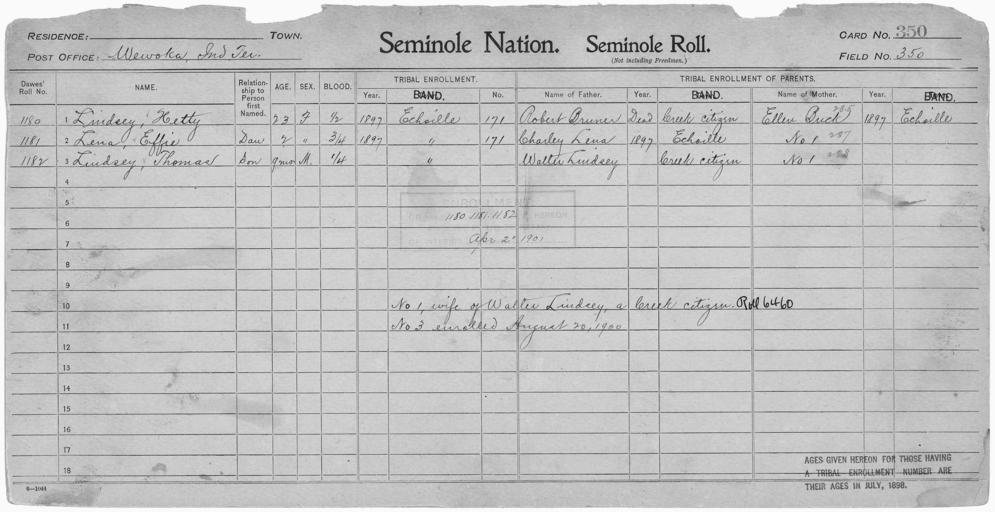 RESIDENCE: TOWN. Seminole Nation. Seminole Roll. CARD NO. 350
POST OFFICE: Wewoka, Ind Ter. (Not including Freedmen.) FIELD NO. 350
Dawes' Roll No. NAME. Relationship to Person first Named. AGE. SEX. BLOOD. TRIBAL ENROLLMENT. TRIBAL ENROLLMENT OF PARENTS.
Year. BAND. No. Name of Father. Year. BAND. Name of Mother. Year. BAND.
1180 1 Lindsey, Hetty 23 F 1/2 1897 Echoille 171 Robert Bruner Dead Creek citizen Ellen Buck 1897 Echoille
1181 2 Lena, Effie Dau 2 " 3/4 1897 " 171 Charley Lena 1897 Echoille No 1
1182 3 Lindsey, Thomas Son 9mo M. 1/4 " Walter Lindsey Creek citizen No 1
4
5
ENROLLMENT
6 1180 1181 1182 HEREON
7 Apr 2 1901
8
9
10 No 1, wife of Walter Lindsey, a Creek citizen. Roll 6460
11 No 3 enrolled August 20, 1900
12
13
14
15
16
17 AGES GIVEN HEREON FOR THOSE HAVING
18 A TRIBAL ENROLLMENT NUMBER ARE
6—1044 THEIR AGES IN JULY, 1898.